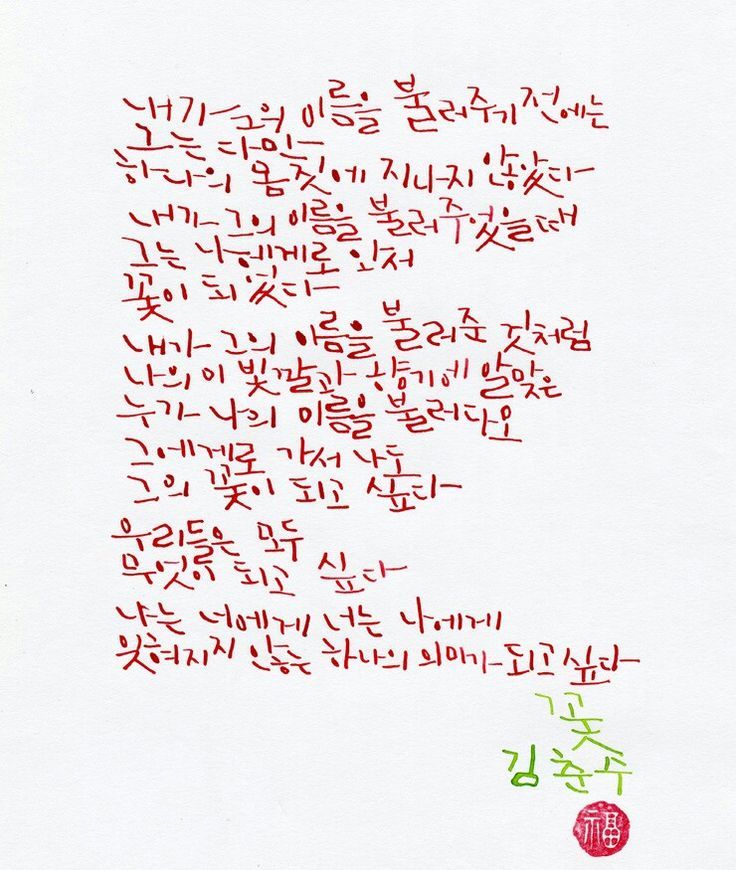 내가 그의 이름을 불러주기 전에는
그는 다만
하나의 몸짓에 지나지 않았다
내가 그의 이름을 불러주었을때
그는 나에게로 와서
꽃이 되었다
내가 그의 이름을 불러준 것처럼
나의 이 빛깔과 향기에 알맞은
누가 나의 이름을 불러다오
그에게로 가서 나도
그의 꽃이 되고 싶다
우리들은 모두
무엇이 되고 싶다
나는 너에게 너는 나에게
잊혀지지 않는 하나의 의미가 되고싶다
꽃
김춘수
福